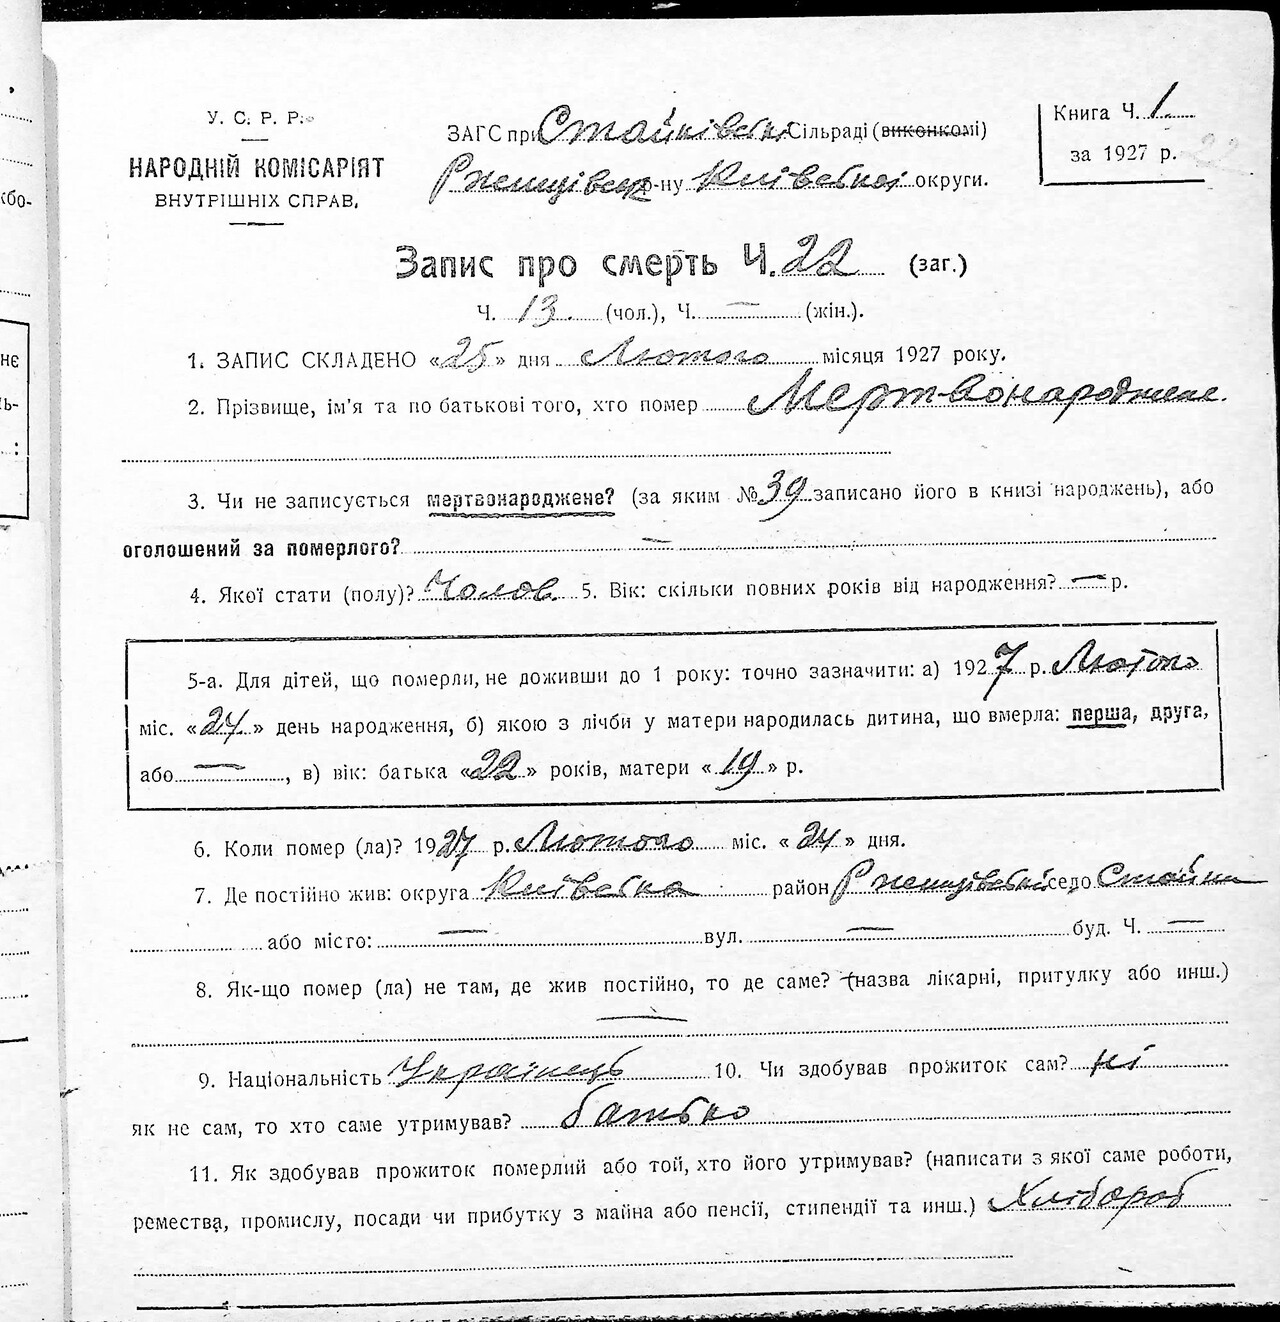 У. С. Р. Р.
НАРОДНІЙ КОМІСАРІЯТ
ВНУТРІШНІХ СПРАВ,
ЗАГС при Стайківській Сільраді (виконкомі)
Ржищівськ р-ну Київської округи.
Книга Ч. 1
за 1927 р. 22
Запис про смерть Ч. 22 (заг.)
Ч. 13. (чол.), Ч. — (жін.).
1. ЗАПИС СКЛАДЕНО «25» дня Лютого місяця 1927 року.
2. Прізвище, ім'я та по батькові того, хто помер Мертвонароджене.
3. Чи не записується мертвонароджене? (за яким № 39 записано його в книзі народжень), або
оголошений за померлого? —
4. Якої стати (полу)? Чолов. 5. Вік: скільки повних років від народження? — р.
5-а. Для дітей, що померли, не доживши до 1 року: точно зазначити: а) 1927 р. Лютого
міс. «24» день народження, б) якою з лічби у матери народилась дитина, що вмерла: перша, друга,
або —, в) вік: батька «22» років, матери «19» р.
6. Коли помер (ла)? 1927 р. Лютого міс. «24» дня.
7. Де постійно жив: округа Київська район Ржищівський село Стайки
або місто: — вул. — буд. Ч. —
8. Як-що помер (ла) не там, де жив постійно, то де саме? (назва лікарні, притулку або инш.)
—
9. Національність Українець 10. Чи здобував прожиток сам? ні
як не сам, то хто саме утримував? батько
11. Як здобував прожиток померлий або той, хто його утримував? (написати з якої саме роботи,
ремества, промислу, посади чи прибутку з майна або пенсії, стипендії та инш.) Хлібороб